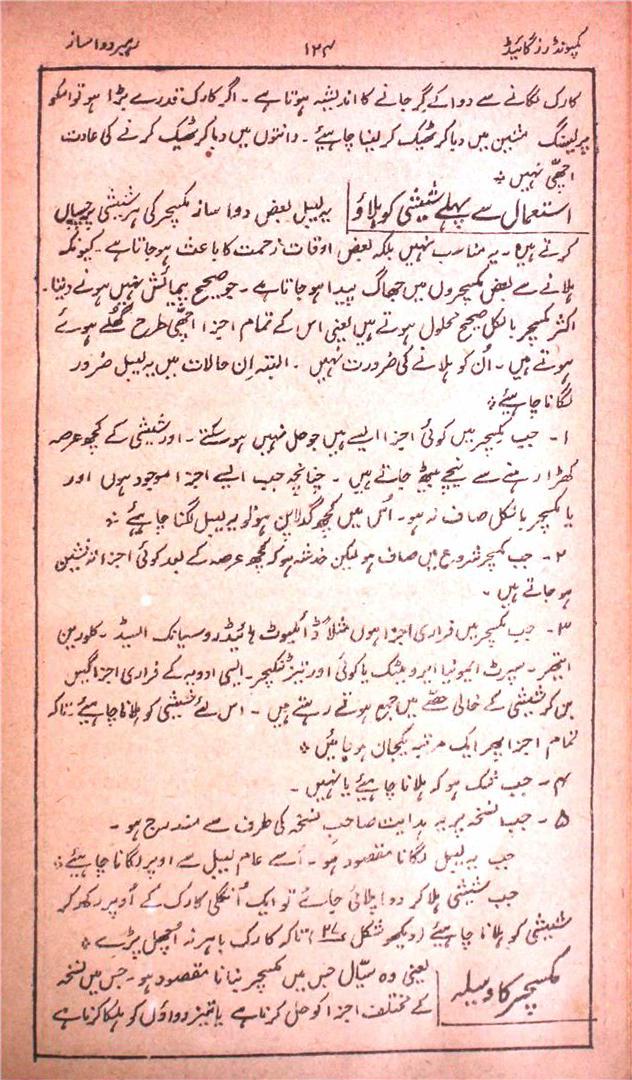 کمپونڈرز گائیڈ ۱۲۴ رہبر دوا ساز
کارک لگانے سے دوا کے گر جانے کا اندیشہ ہوتا ہے ۔ اگر کارک قدرے بڑا ہو تو اسکو
پریسنگ مشین میں دبا کر ٹھیک کر لینا چاہیئے ۔ دانتوں میں دبا کر ٹھیک کرنے کی عادت
اچھی نہیں ٭
استعمال سے پہلے شیشی کو ہلاؤ یہ لیبل بعض دوا ساز مکسچر کی ہر شیشی پر چسپاں
کرتے ہیں ۔ یہ مناسب نہیں بلکہ بعض اوقات زحمت کا باعث ہو جاتا ہے ۔ کیونکہ
ہلانے سے بعض مکسچروں میں جھاگ پیدا ہو جاتا ہے ۔ جو صحیح پیمائش نہیں ہونے دیتا ۔
اکثر مکسچر بالکل صحیح محلول ہوتے ہیں یعنی اس کے تمام اجزا اچھی طرح گھلے ہوئے
ہوتے ہیں ۔ اُن کو ہلانے کی ضرورت نہیں ۔ البتہ اِن حالات میں یہ لیبل ضرور
لگانا چاہیئے ٭
۱ ۔ جب مکسچر میں کوئی اجزا ایسے ہیں جو حل نہیں ہو سکتے ۔ اور شیشی کے کچھ عرصہ
کھڑا رہنے سے نیچے بیٹھ جاتے ہیں ۔ چنانچہ جب ایسے اجزا موجود ہوں اور
یا مکسچر بالکل صاف نہ ہو ۔ اُس میں کچھ گدلا پن ہو تو یہ لیبل لگنا چاہیئے ٭
۲ ۔ جب مکسچر شروع میں صاف ہو لیکن خدشہ ہو کہ کچھ عرصہ کے بعد کوئی اجزا تہ نشین
ہو جاتے ہیں ۔
۳ ۔ جب مکسچر میں فراری اجزا ہوں مثلاً ڈائلیوٹ ہائیڈروسیانک ایسڈ ۔ کلورین
ایتھر ۔ سپرٹ ایمونیا ایرومیٹک یا کوئی اور تیز ٹنکچر ۔ ایسی ادویہ کے فراری اجزا گیس
بن کر شیشی کے خالی حصے میں جمع ہوتے رہتے ہیں ۔ اس لئے شیشی کو ہلانا چاہیئے ۔ تاکہ
تمام اجزا پھر ایک مرتبہ یکجان ہو جائیں ٭
۴ ۔ جب شک ہو کہ ہلانا چاہیئے یا نہیں ۔
۵ ۔ جب نسخہ پر یہ ہدایت صاحبِ نسخہ کی طرف سے مندرج ہو ۔
جب یہ لیبل لگانا مقصود ہو ۔ اُسے عام لیبل سے اوپر لگانا چاہیئے ٭
جب شیشی ہلا کر دوا پلائی جائے تو ایک اُنگلی کارک کے اُوپر رکھ کر
شیشی کو ہلانا چاہیئے (دیکھو شکل ۲۷) تاکہ کارک باہر نہ اُچھل پڑے ٭
مکسچر کا وسیلہ یعنی وہ سیّال جس میں مکسچر بنانا مقصود ہو ۔ جس میں نسخہ
کے مختلف اجزا کو حل کرنا ہے یا تیز دواؤں کو ہلکا کرنا ہے